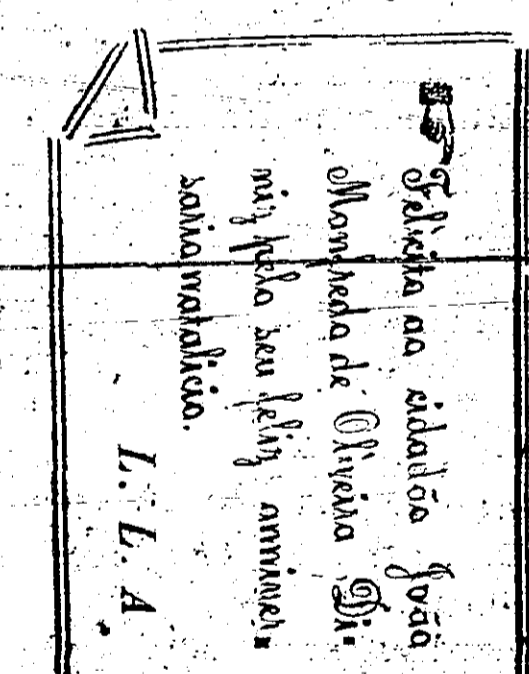 ☞Felicito ao cidadão João
Monfredo de Oliveira Di-
niz pelo seu feliz anniver-
sario natalicio.
L. L. A.